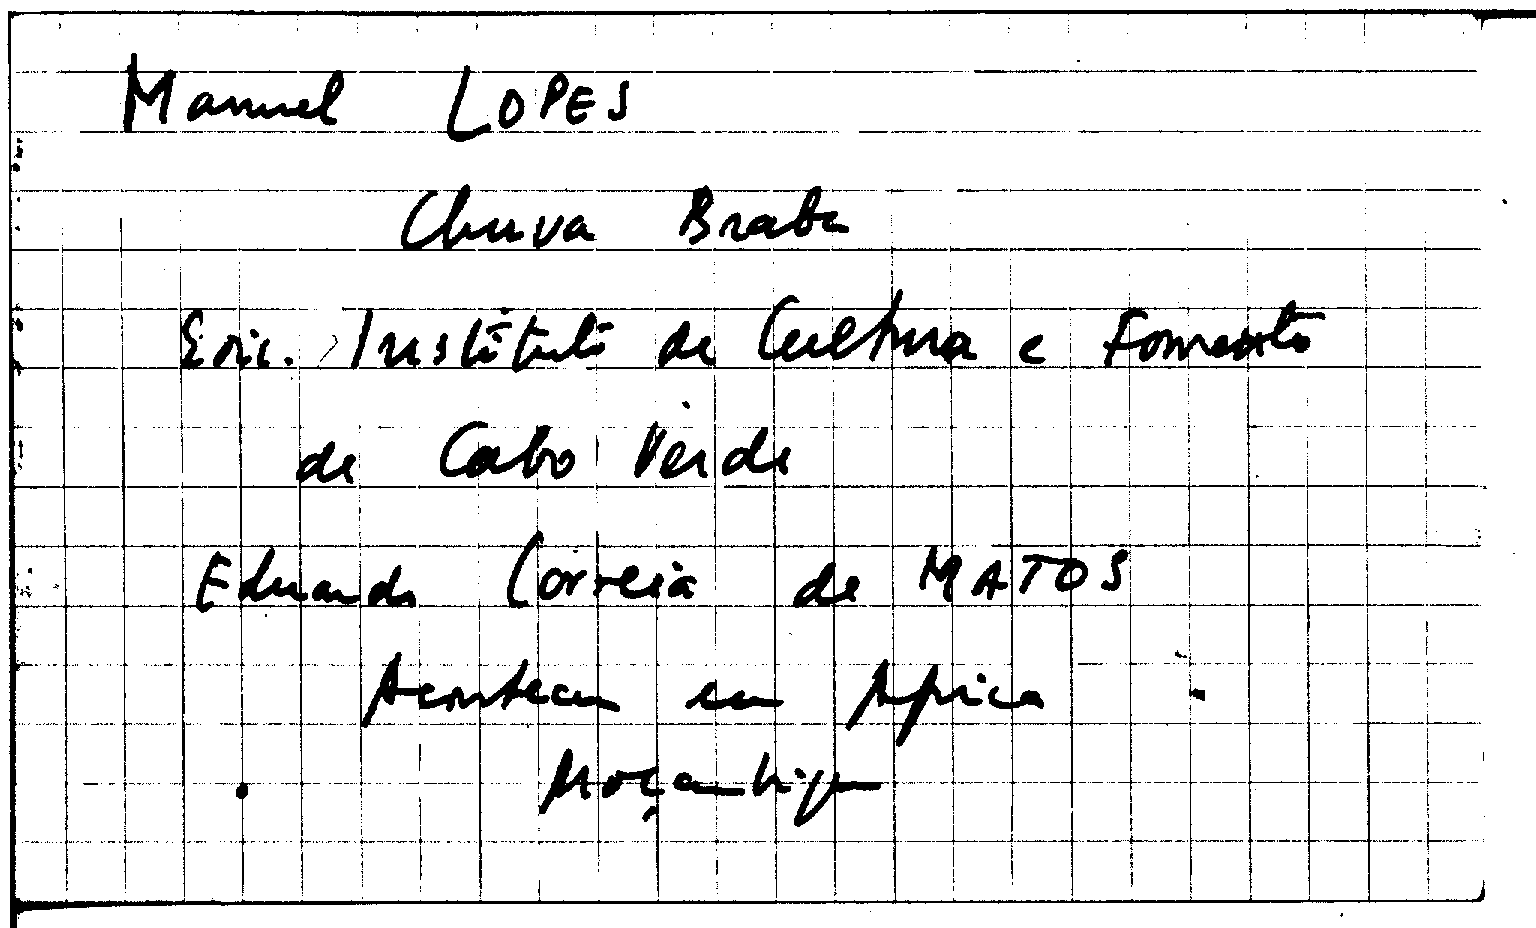 Manuel LOPES
Chuva Braba
Edic. Instituto de Cultura e Fomento
de Cabo Verde
Eduardo Correia de MATOS
Aconteceu em Africa
Moçambique